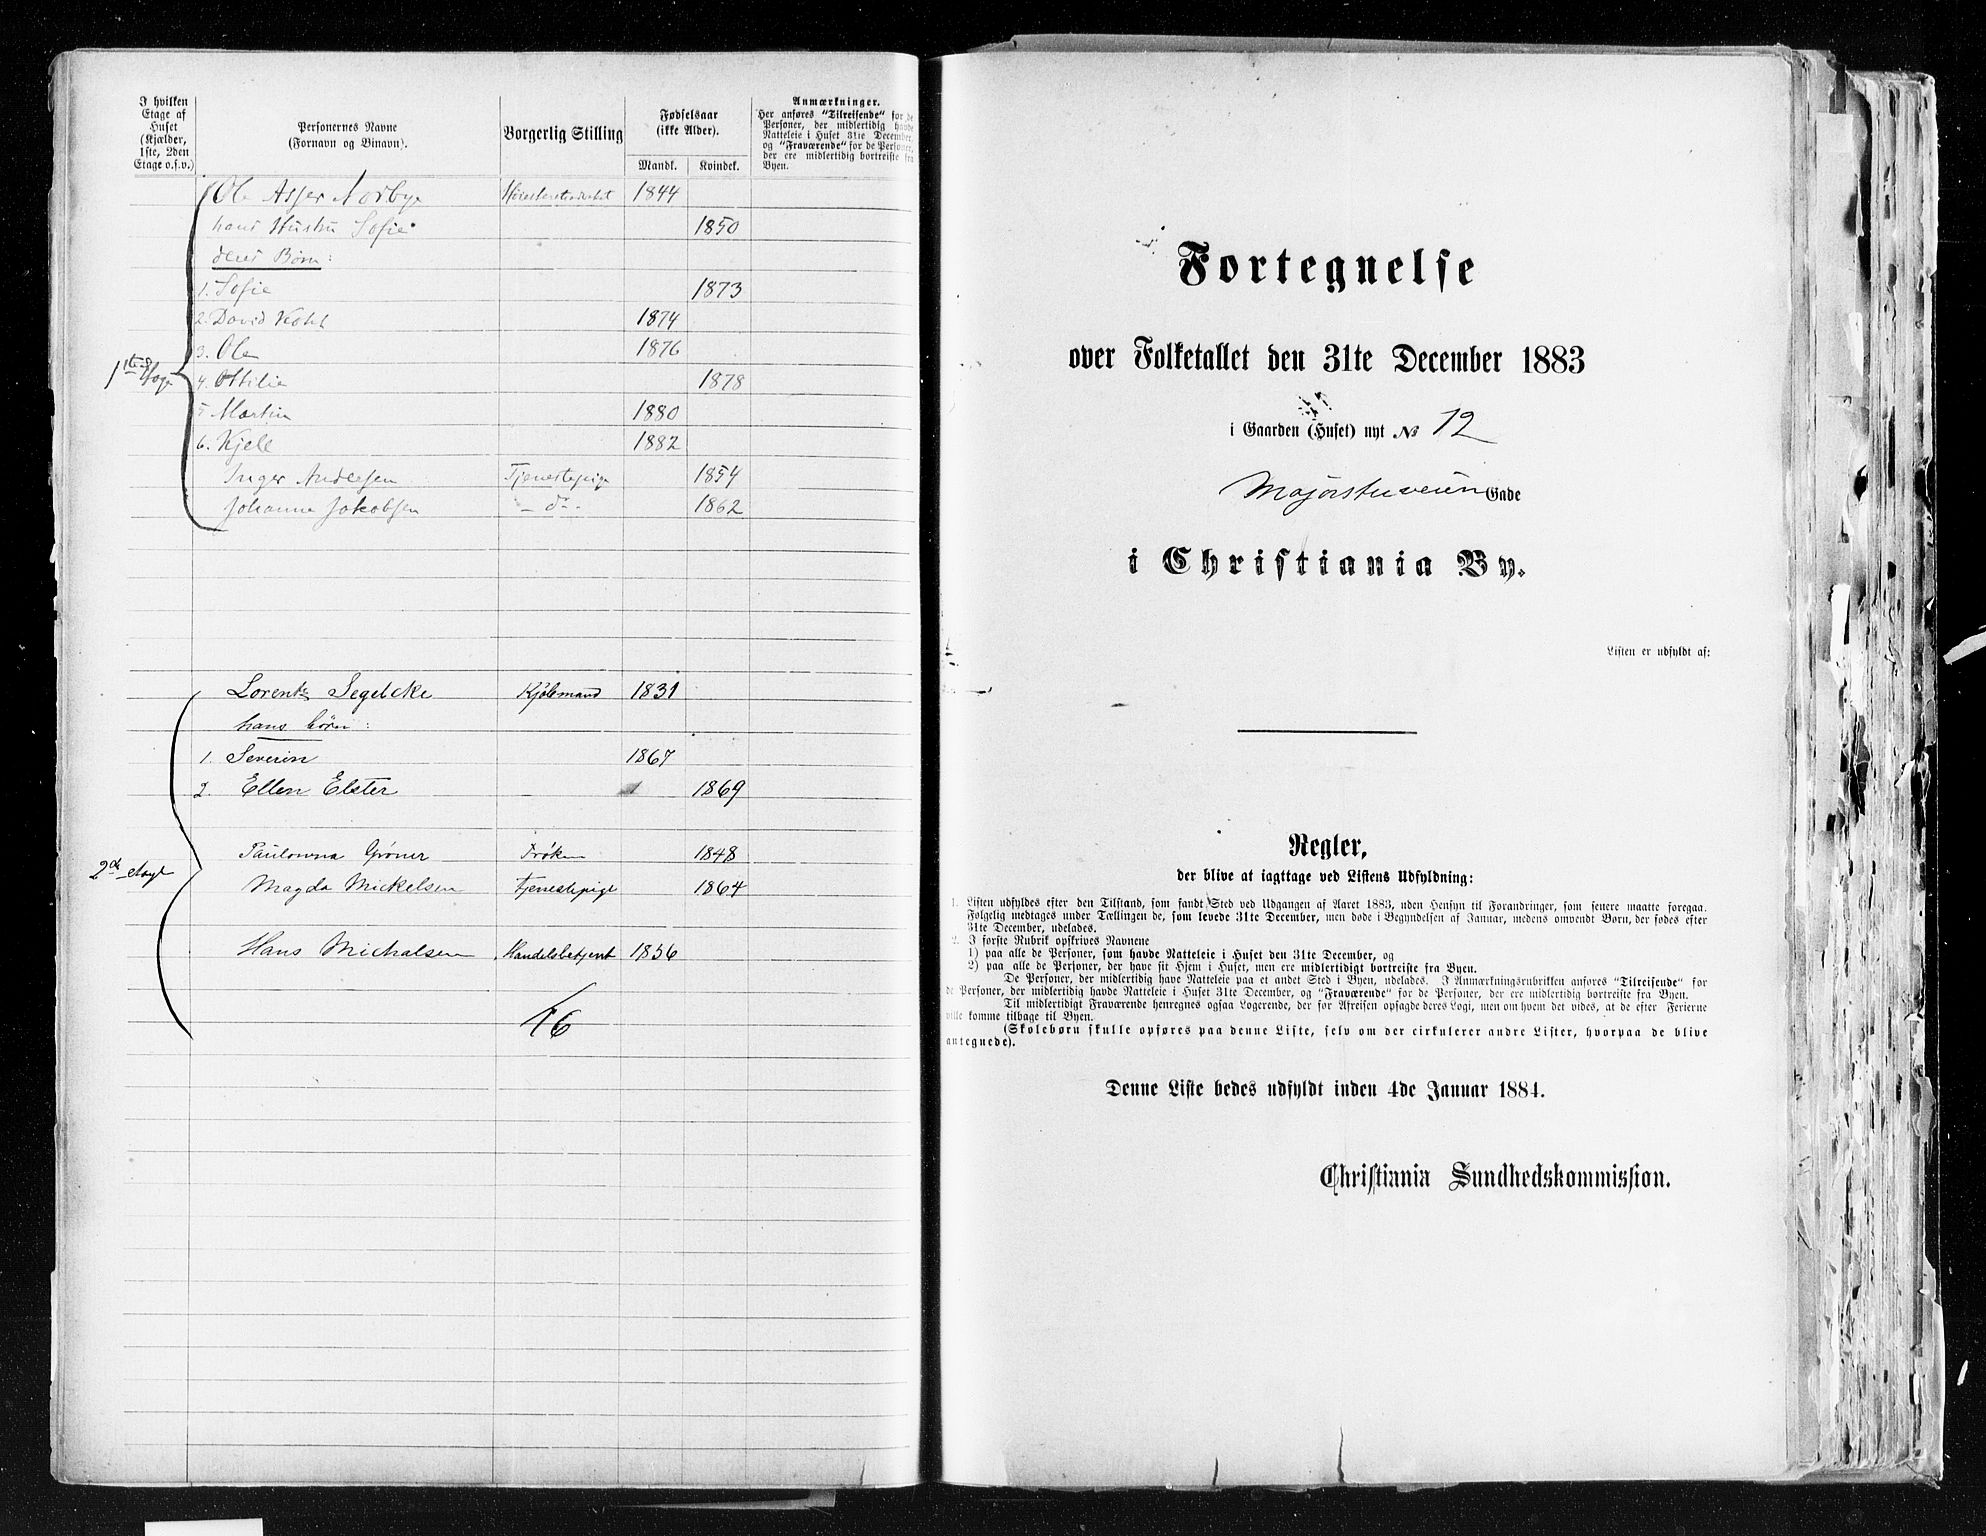 I hvilken
Etage af
Huset
(Kjælder,
1ste, 2den
Etage o.s.v.)
Personernes Navne
(Fornavn og Binavn).
Borgerlig Stilling
Fødselsaar
(ikke Alder).
Mandk. Kvindek.
Anmærkninger.
Her anføres "Tilreisende" for de
Personer, der midlertidig havde
Natteleie i Huset 31te December,
og "Fraværende" for de Personer,
der ere midlertidig bortreiste fra
Byen.
1ste Etage
Ole Asser Norbye Høiesteretsadvokat 1844
hans Hustru Sofie 1850
deres Børn:
1. Sofie 1873
2. David Kohl 1874
3. Ole 1876
4. Ottilie 1878
5 Martin 1880
6. Kjell 1882
Inger Andersen Tjenestepige 1854
Johanne Jakobsen - do - 1862
2den etage
Lorentz Segelcke Kjøbmand 1831
hans børn:
1. Severin 1867
2. Ellen Elster 1869
Paulowna Gröner Frøken 1848
Magda Mickelsen Tjenestepige 1864
Hans Michalsen Handelsbetjent 1856
16
Fortegnelse
over Folketallet den 31te December 1883
i Gaarden (Huset) nyt № 12
Majorstuveien Gade
i Christiania By.
Listen er udfyldt af:
Regler,
der blive at iagttage ved Listens Udfyldning:
1. Listen udfyldes efter den Tilstand, som fandt Sted ved Udgangen af Aaret 1883, uden Hensyn til Forandringer, som senere maatte foregaa.
Følgelig medtages under Tællingen de, som levede 31te December, men døde i Begyndelsen af Januar, medens omvendt Børn, der fødes efter
31te December, udelades.
2. I første Rubrik opskrives Navnene
1) paa alle de Personer, som havde Natteleie i Huset den 31te December, og
2) paa alle de Personer, der have sit Hjem i Huset, men ere midlertidigt bortreiste fra Byen.
De Personer, der midlertidig have Natteleie paa et andet Sted i Byen, udelades. I Anmærkningsrubrikken anføres "Tilreisende" for
de Personer, der midlertidig havde Natteleie i Huset 31te December, og "Fraværende" for de Personer, der ere midlertidig bortreiste fra Byen.
Til midlertidigt Fraværende henregnes ogsaa Logerende, der før Afreisen opsagde deres Logi, men om hvem det vides, at de efter Ferierne
ville komme tilbage til Byen.
(Skolebørn skulle opføres paa denne Liste, selv om der cirkulerer andre Lister, hvorpaa de blive
antegnede).
Denne Liste bedes udfyldt inden 4de Januar 1884.
Christiania Sundhedskommission.